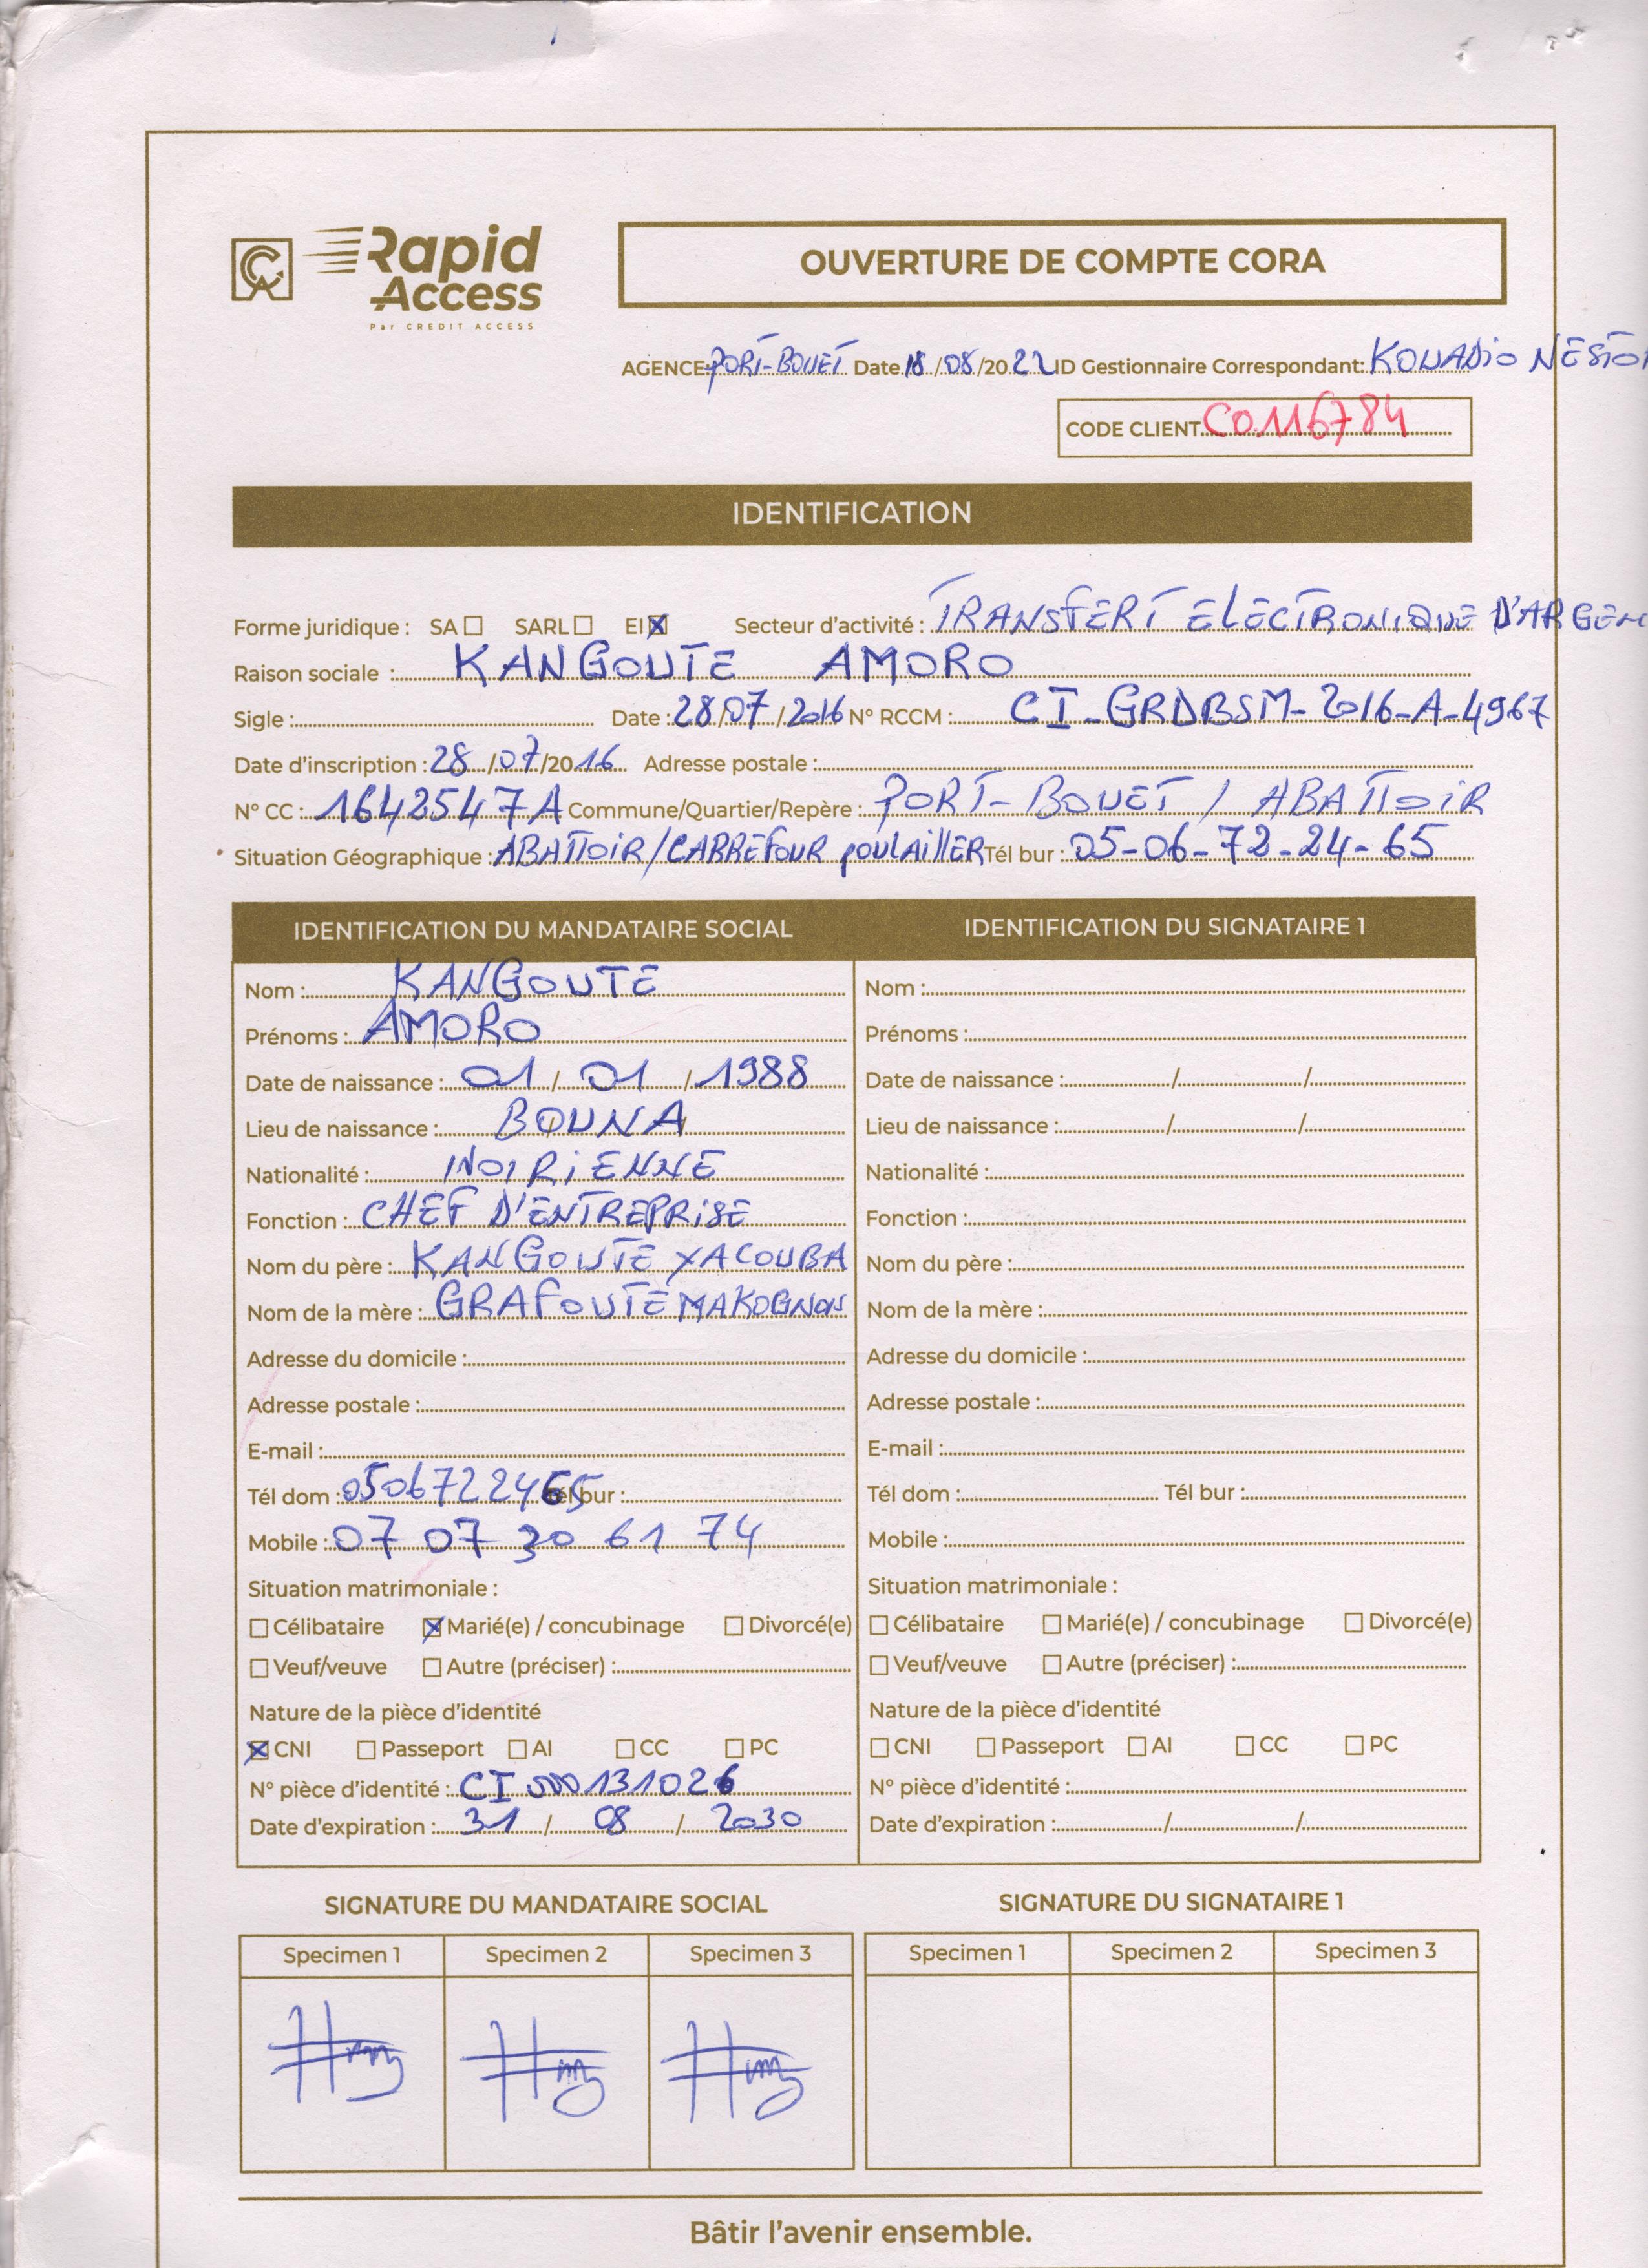 Rapid Access
Par CREDIT ACCESS
OUVERTURE DE COMPTE CORA
AGENCE: PORT-BOUET Date 18/08/2022 ID Gestionnaire Correspondant: KOUADIO NESTOR
CODE CLIENT C0116784
IDENTIFICATION
Forme juridique : SA ☐ SARL ☐ EI ☒ Secteur d'activité : TRANSFERT ELECTRONIQUE D'ARGEN
Raison sociale : KANGOUTE AMORO
Sigle : Date : 28/07/2016 N° RCCM : CI-GRDBSM-2016-A-4967
Date d'inscription : 28/07/2016 Adresse postale :
N° CC : 1642547A Commune/Quartier/Repère : PORT-BOUET / ABATTOIR
Situation Géographique : ABATTOIR/CARREFOUR POULAILLER Tél bur : 05-06-72-24-65
IDENTIFICATION DU MANDATAIRE SOCIAL
Nom : KANGOUTE
Prénoms : AMORO
Date de naissance : 01/01/1988
Lieu de naissance : BOUNA
Nationalité : IVOIRIENNE
Fonction : CHEF D'ENTREPRISE
Nom du père : KANGOUTE YACOUBA
Nom de la mère : GRAFOUTE MAKOGNON
Adresse du domicile :
Adresse postale :
E-mail :
Tél dom : 0506722465 Tél bur :
Mobile : 07 07 30 61 74
Situation matrimoniale :
☐ Célibataire ☒ Marié(e) / concubinage ☐ Divorcé(e)
☐ Veuf/veuve ☐ Autre (préciser) :
Nature de la pièce d'identité
☒ CNI ☐ Passeport ☐ AI ☐ CC ☐ PC
N° pièce d'identité : CI 000131026
Date d'expiration : 31/08/2030
IDENTIFICATION DU SIGNATAIRE 1
Nom :
Prénoms :
Date de naissance : / /
Lieu de naissance : / /
Nationalité :
Fonction :
Nom du père :
Nom de la mère :
Adresse du domicile :
Adresse postale :
E-mail :
Tél dom : Tél bur :
Mobile :
Situation matrimoniale :
☐ Célibataire ☐ Marié(e) / concubinage ☐ Divorcé(e)
☐ Veuf/veuve ☐ Autre (préciser) :
Nature de la pièce d'identité
☐ CNI ☐ Passeport ☐ AI ☐ CC ☐ PC
N° pièce d'identité :
Date d'expiration : / /
SIGNATURE DU MANDATAIRE SOCIAL
Specimen 1 Specimen 2 Specimen 3
SIGNATURE DU SIGNATAIRE 1
Specimen 1 Specimen 2 Specimen 3
Bâtir l'avenir ensemble.